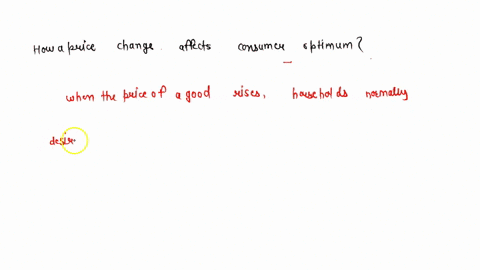 How a price change affects consumer optimum?
when the price of a good rises, households normally
desire